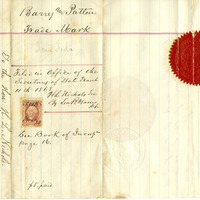 Barry & Patten
Trade Mark
Filed in Office of the
Secretary of State March
11th 1868
H L Nichols Sec
By
See Book of
page 16.
pd paid
To the Hon H. L. Nichols